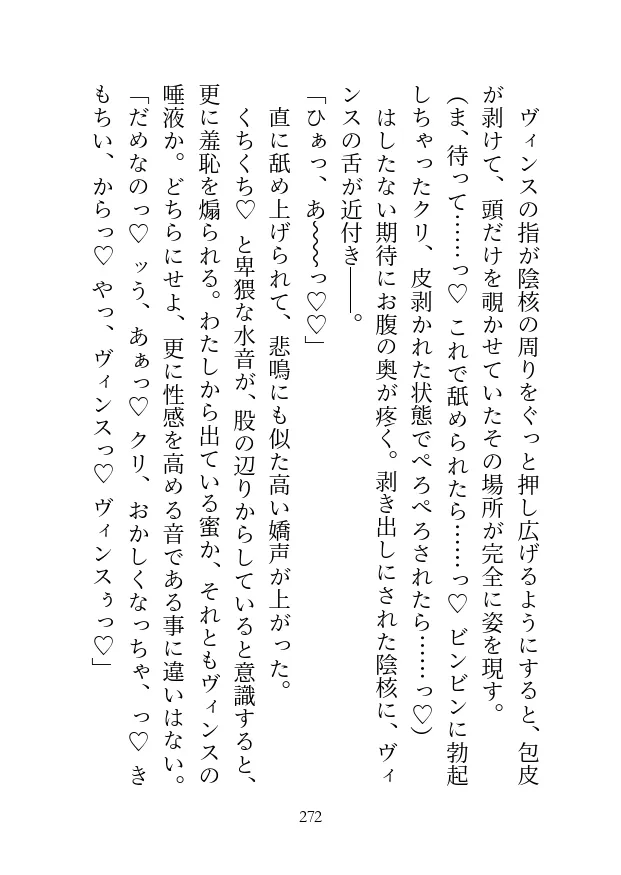 ヴィンスの指が陰核の周りをぐっと押し広げるようにすると、包皮
が剥けて、頭だけを覗かせていたその場所が完全に姿を現す。
(ま、待って……っ♡ これで舐められたら……っ♡ ビンビンに勃起
しちゃったクリ、皮剥かれた状態でぺろぺろされたら……っ♡)
はしたない期待にお腹の奥が疼く。剥き出しにされた陰核に、ヴィ
ンスの舌が近付き――。
「ひぁっ、あ〜〜〜っ♡♡」
直に舐め上げられて、悲鳴にも似た高い嬌声が上がった。
くちくち♡ と卑猥な水音が、股の辺りからしていると意識すると、
更に羞恥を煽られる。わたしから出ている蜜か、それともヴィンスの
唾液か。どちらにせよ、更に性感を高める音である事に違いはない。
「だめなのっ♡ ッう、あぁっ♡ クリ、おかしくなっちゃ、っ♡ き
もちい、からっ♡ やっ、ヴィンスっ♡ ヴィンスぅっ♡」
272